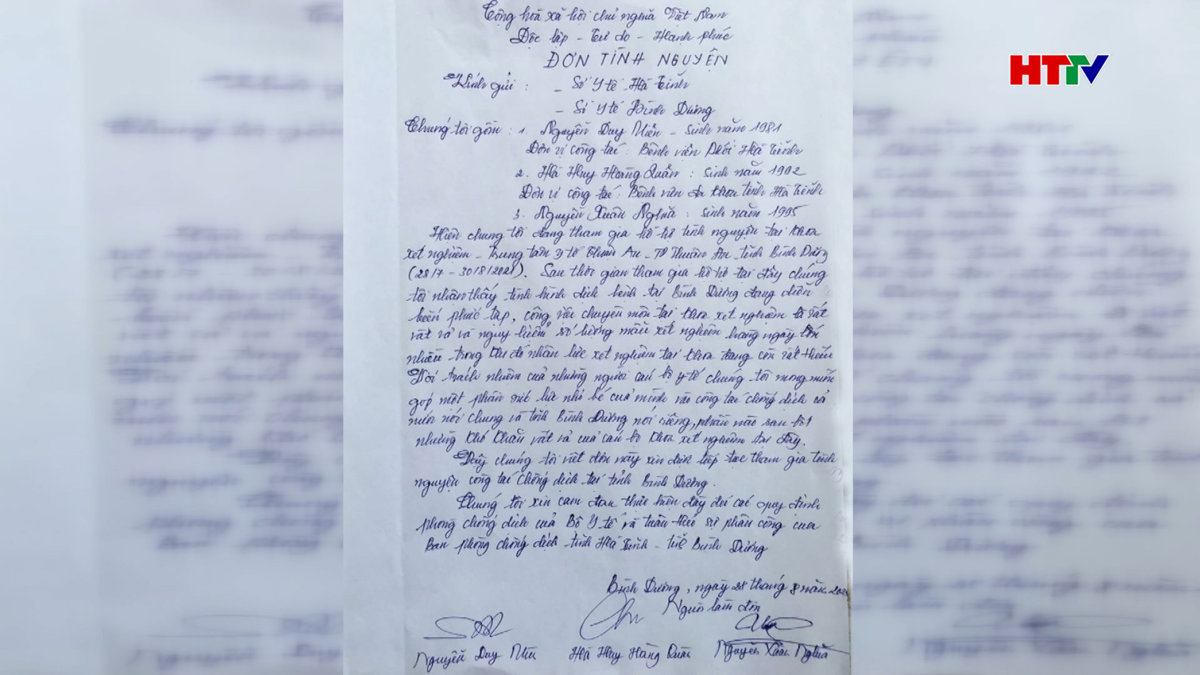 HTTV
Cộng hoà xã hội chủ nghĩa Việt Nam
Độc lập - Tự do - Hạnh phúc
ĐƠN TÌNH NGUYỆN
Kính gửi : - Sở Y tế Hà Tĩnh
- Sở Y tế Bình Dương
Chúng tôi gồm : 1. Nguyễn Duy - Sinh năm 1981
Đơn vị công tác : Bệnh viện Phổi Hà Tĩnh
2. Hà Huy Hoàng Quân : Sinh năm 1992
Đơn vị công tác : Bệnh viện đa khoa tỉnh Hà Tĩnh
3. Nguyễn Xuân Nghĩa : Sinh năm 1995
Hiện chúng tôi đang tham gia hỗ trợ tình nguyện tại khoa
xét nghiệm - Trung tâm y tế Thuận An - TP Thuận An - tỉnh Bình Dương
(28/7 - 30/8/2021). Sau thời gian tham gia hỗ trợ tại đây chúng
tôi nhận thấy tình hình dịch bệnh tại Bình Dương đang diễn
biến phức tạp, công việc chuyên môn tại khoa xét nghiệm là rất
vất vả và nguy hiểm số lượng mẫu xét nghiệm hàng ngày lớn
nhiều trong khi đó nhân lực xét nghiệm tại khoa đang còn rất thiếu
Với trách nhiệm của những người cán bộ y tế chúng tôi mong muốn
góp một phần nhỏ bé của mình vào công tác chống dịch cả
nước nói chung và tỉnh Bình Dương nói riêng, phần nào san bớt
những khó khăn vất vả của cán bộ khoa xét nghiệm tại đây.
Vậy chúng tôi viết đơn này xin được tiếp tục tham gia tình
nguyện công tác chống dịch tại tỉnh Bình Dương.
Chúng tôi xin cam đoan thực hiện đầy đủ các quy định
phòng chống dịch của Bộ Y tế và tuân theo sự phân công của
Ban phòng chống dịch tỉnh Hà Tĩnh - Bình Dương
Bình Dương, ngày 28 tháng 8 năm
Người làm đơn
Nguyễn Duy
Hà Huy Hoàng Quân
Nguyễn Xuân Nghĩa